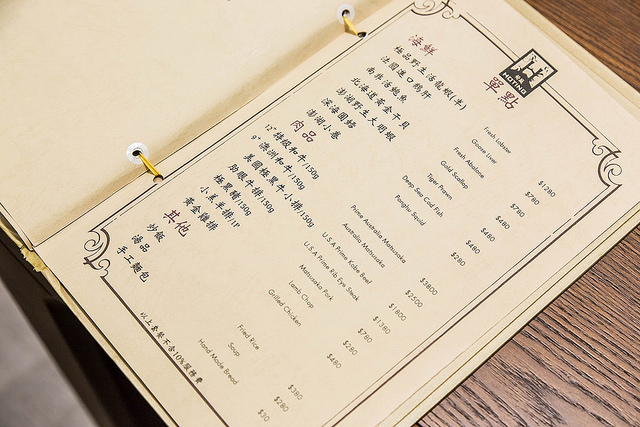 HOTING
單點
海鮮
極品野生活龍蝦(半) Fresh Lobster $1280
法國進口鵝肝 Goose Liver $780
南非活鮑魚 Fresh Abalone $780
北海道黃金干貝 Gold Scallop $480
澎湖野生大明蝦 Tiger Prawn $480
深海圓鱈 Deep Sea Cod Fish $480
澎湖小卷 Penghu Squid $280
肉品
12+特級和牛/150g Prime Australia Matsusaka $3800
9+澳洲和牛/150g Australia Matsusaka $2500
美國極黑牛小排/150g U.S.A Prime Kobe Beef $1800
肋眼牛排/150g U.S.A Prime Rib Eye Steak $1380
極黑豬/150g Matsusaka Pork $780
小羔羊排/1P Lamb Chop $280
黃金雞排 Grilled Chicken $480
其他
炒飯 Fried Rice $380
湯品 Soup $280
手工麵包 Hand Made Bread $30
以上套餐不含10%服務費